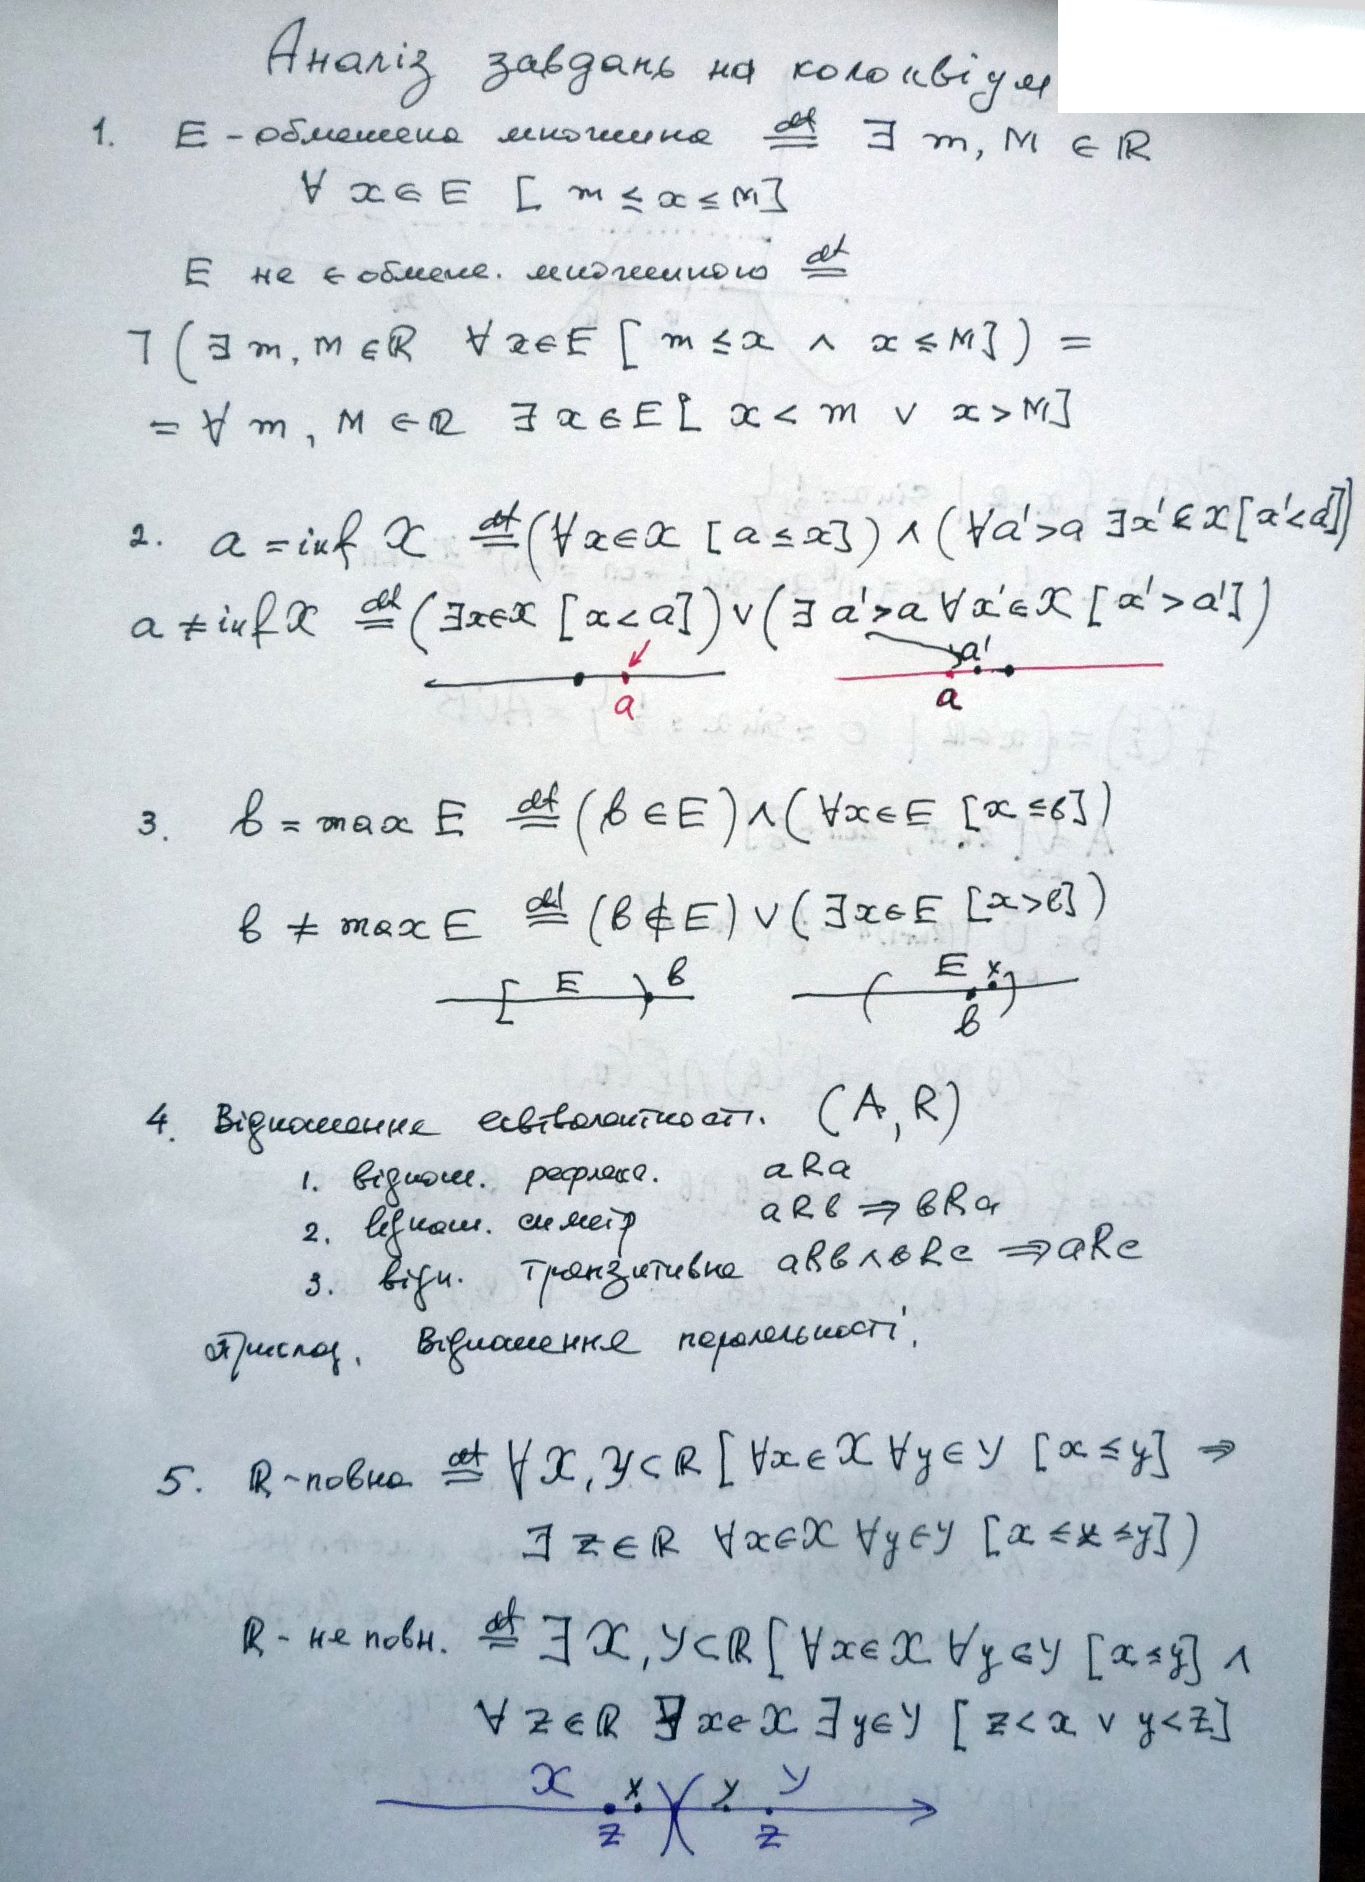 Аналіз завдань на колоквіум
1. E - обмежена множина df= ∃ m, M ∈ ℝ
∀ x ∈ E [ m ≤ x ≤ M ]
E не є обмеж. множиною df=
¬ ( ∃ m, M ∈ ℝ ∀ x ∈ E [ m ≤ x ∧ x ≤ M ] ) =
= ∀ m, M ∈ ℝ ∃ x ∈ E [ x < m ∨ x > M ]
2. a = inf X df= ( ∀ x ∈ X [ a ≤ x ] ) ∧ ( ∀ a' > a ∃ x' ∈ X [ x' < a' ] )
a ≠ inf X df= ( ∃ x ∈ X [ x < a ] ) ∨ ( ∃ a' > a ∀ x' ∈ X [ x' > a' ] )
a'
a a
3. в = max E df= ( в ∈ E ) ∧ ( ∀ x ∈ E [ x ≤ в ] )
в ≠ max E df= ( в ∉ E ) ∨ ( ∃ x ∈ E [ x > в ] )
E в E x
в
4. Відношення еквівалентності. (A, R)
1. віднош. рефлекс. aRa
2. віднош. симетр aRв ⇒ вRa
3. відн. транзитивне aRв ∧ вRc ⇒ aRc
Приклад. Відношення паралельності.
5. ℝ - повна df= ∀ X, Y ⊂ ℝ [ ∀ x ∈ X ∀ y ∈ Y [ x ≤ y ] ⇒
∃ z ∈ ℝ ∀ x ∈ X ∀ y ∈ Y [ x ≤ z ≤ y ] )
ℝ - не повн. df= ∃ X, Y ⊂ ℝ [ ∀ x ∈ X ∀ y ∈ Y [ x ≤ y ] ∧
∀ z ∈ ℝ ∃ x ∈ X ∃ y ∈ Y [ z < x ∨ y < z ]
X x y Y
z z